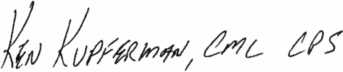 KEN KUPFERMAN, CML CPS